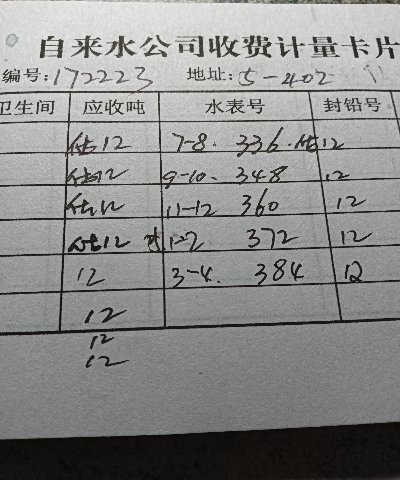 自来水公司收费计量卡片
编号:172223 地址:5-402
卫生间 应收吨 水表号 封铅号
估12 7-8. 336. 估12
估12 9-10. 348 12
估12 11-12 360 12
估12 1-2 372 12
12 3-4. 384 12
12
12
12